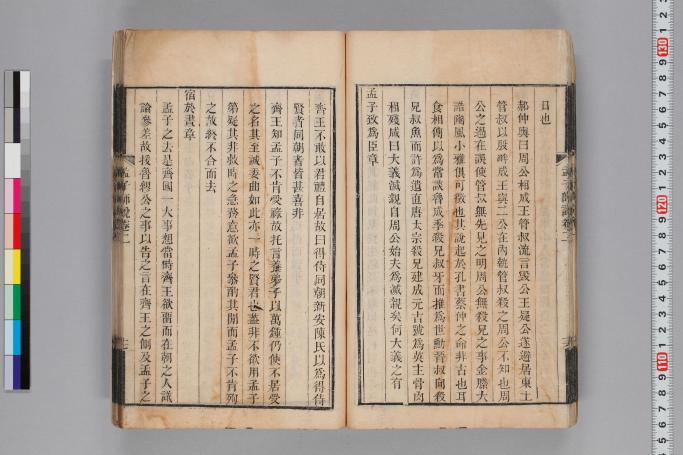 目也
郝仲輿曰周公相成王管叔流言毀公王疑公遂避居東土
管叔以殷畔成王與二公在內執管叔殺之周公不知也周
公之過在誤使管叔無先見之明周公無殺兄之事金縢大
誥豳風小雅俱可徵也其說起於孔書蔡仲之命非古也耳
食相傳以爲常談魯成季殺兄叔牙而推爲世勳晉叔向殺
兄叔魚而許爲遺直唐太宗殺兄建成元吉號爲英主骨肉
相殘咸曰大義滅親自周公始夫爲滅親矣何大義之有
孟子致爲臣章
齊王不敢以君禮自居故曰得侍同朝新安陳氏以爲得侍
賢者同朝者皆甚喜非
齊王知孟子不肯受祿故托言養弟子以萬鍾仍使不居受
之名其至誠委曲如此亦一時之賢君也蓋非不欲用孟子
第疑其非救時之急務意欲孟子參酌其間而孟子不肯殉
之故終不合而去
宿於晝章
孟子之去是齊國一大事想當時齊王欲留而在朝之人議
論參差故援魯繆公之事以告之言在齊王之側及孟子之
孟子師說卷二